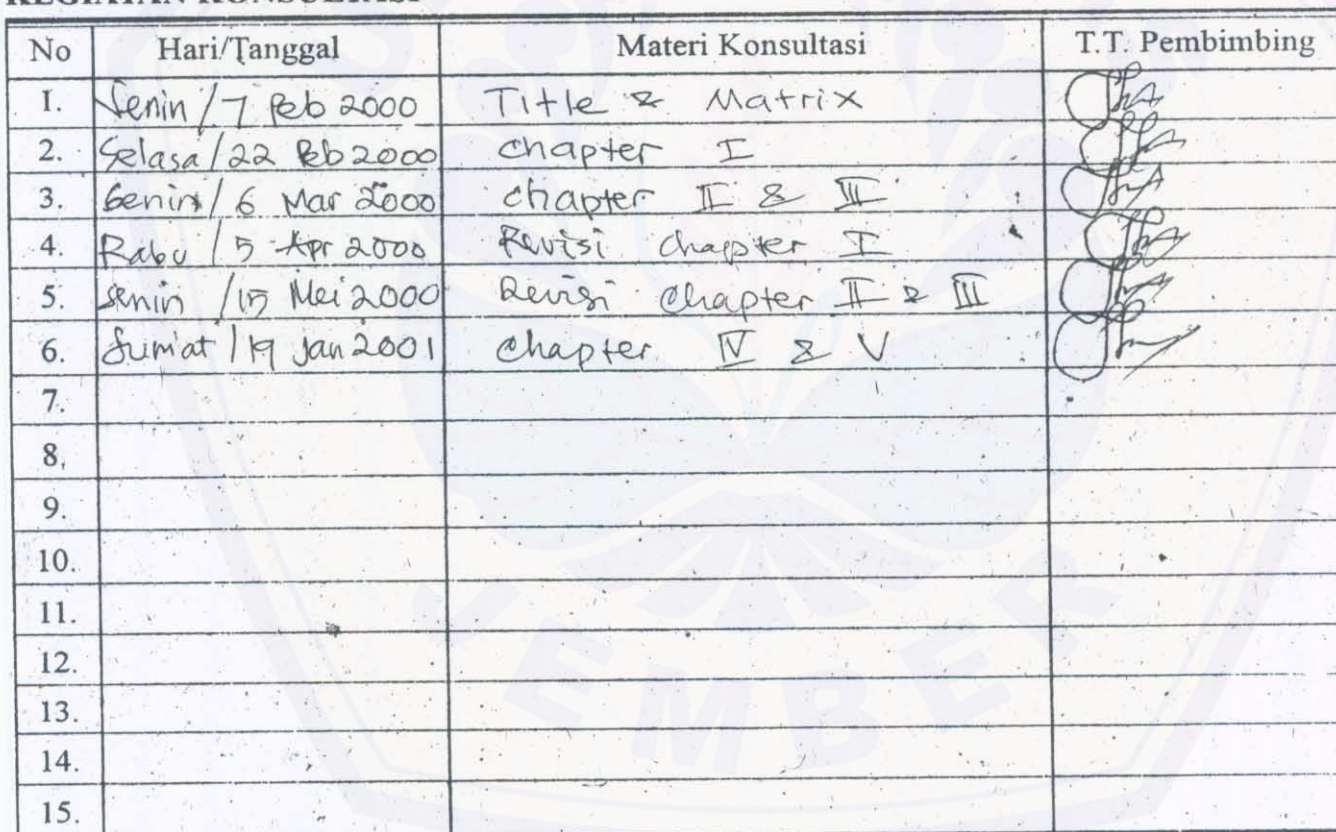 KEGIATAN KONSULTASI
No Hari/Tanggal Materi Konsultasi T.T. Pembimbing
1. Senin / 7 Peb 2000 Title & Matrix
2. Selasa / 22 Peb 2000 Chapter I
3. Senin / 6 Mar 2000 Chapter II & III
4. Rabu / 5 Apr 2000 Revisi Chapter I
5. Senin / 15 Mei 2000 Revisi Chapter II & III
6. Jum'at / 19 Jan 2001 Chapter IV & V
7.
8.
9.
10.
11.
12.
13.
14.
15.
JEMBER